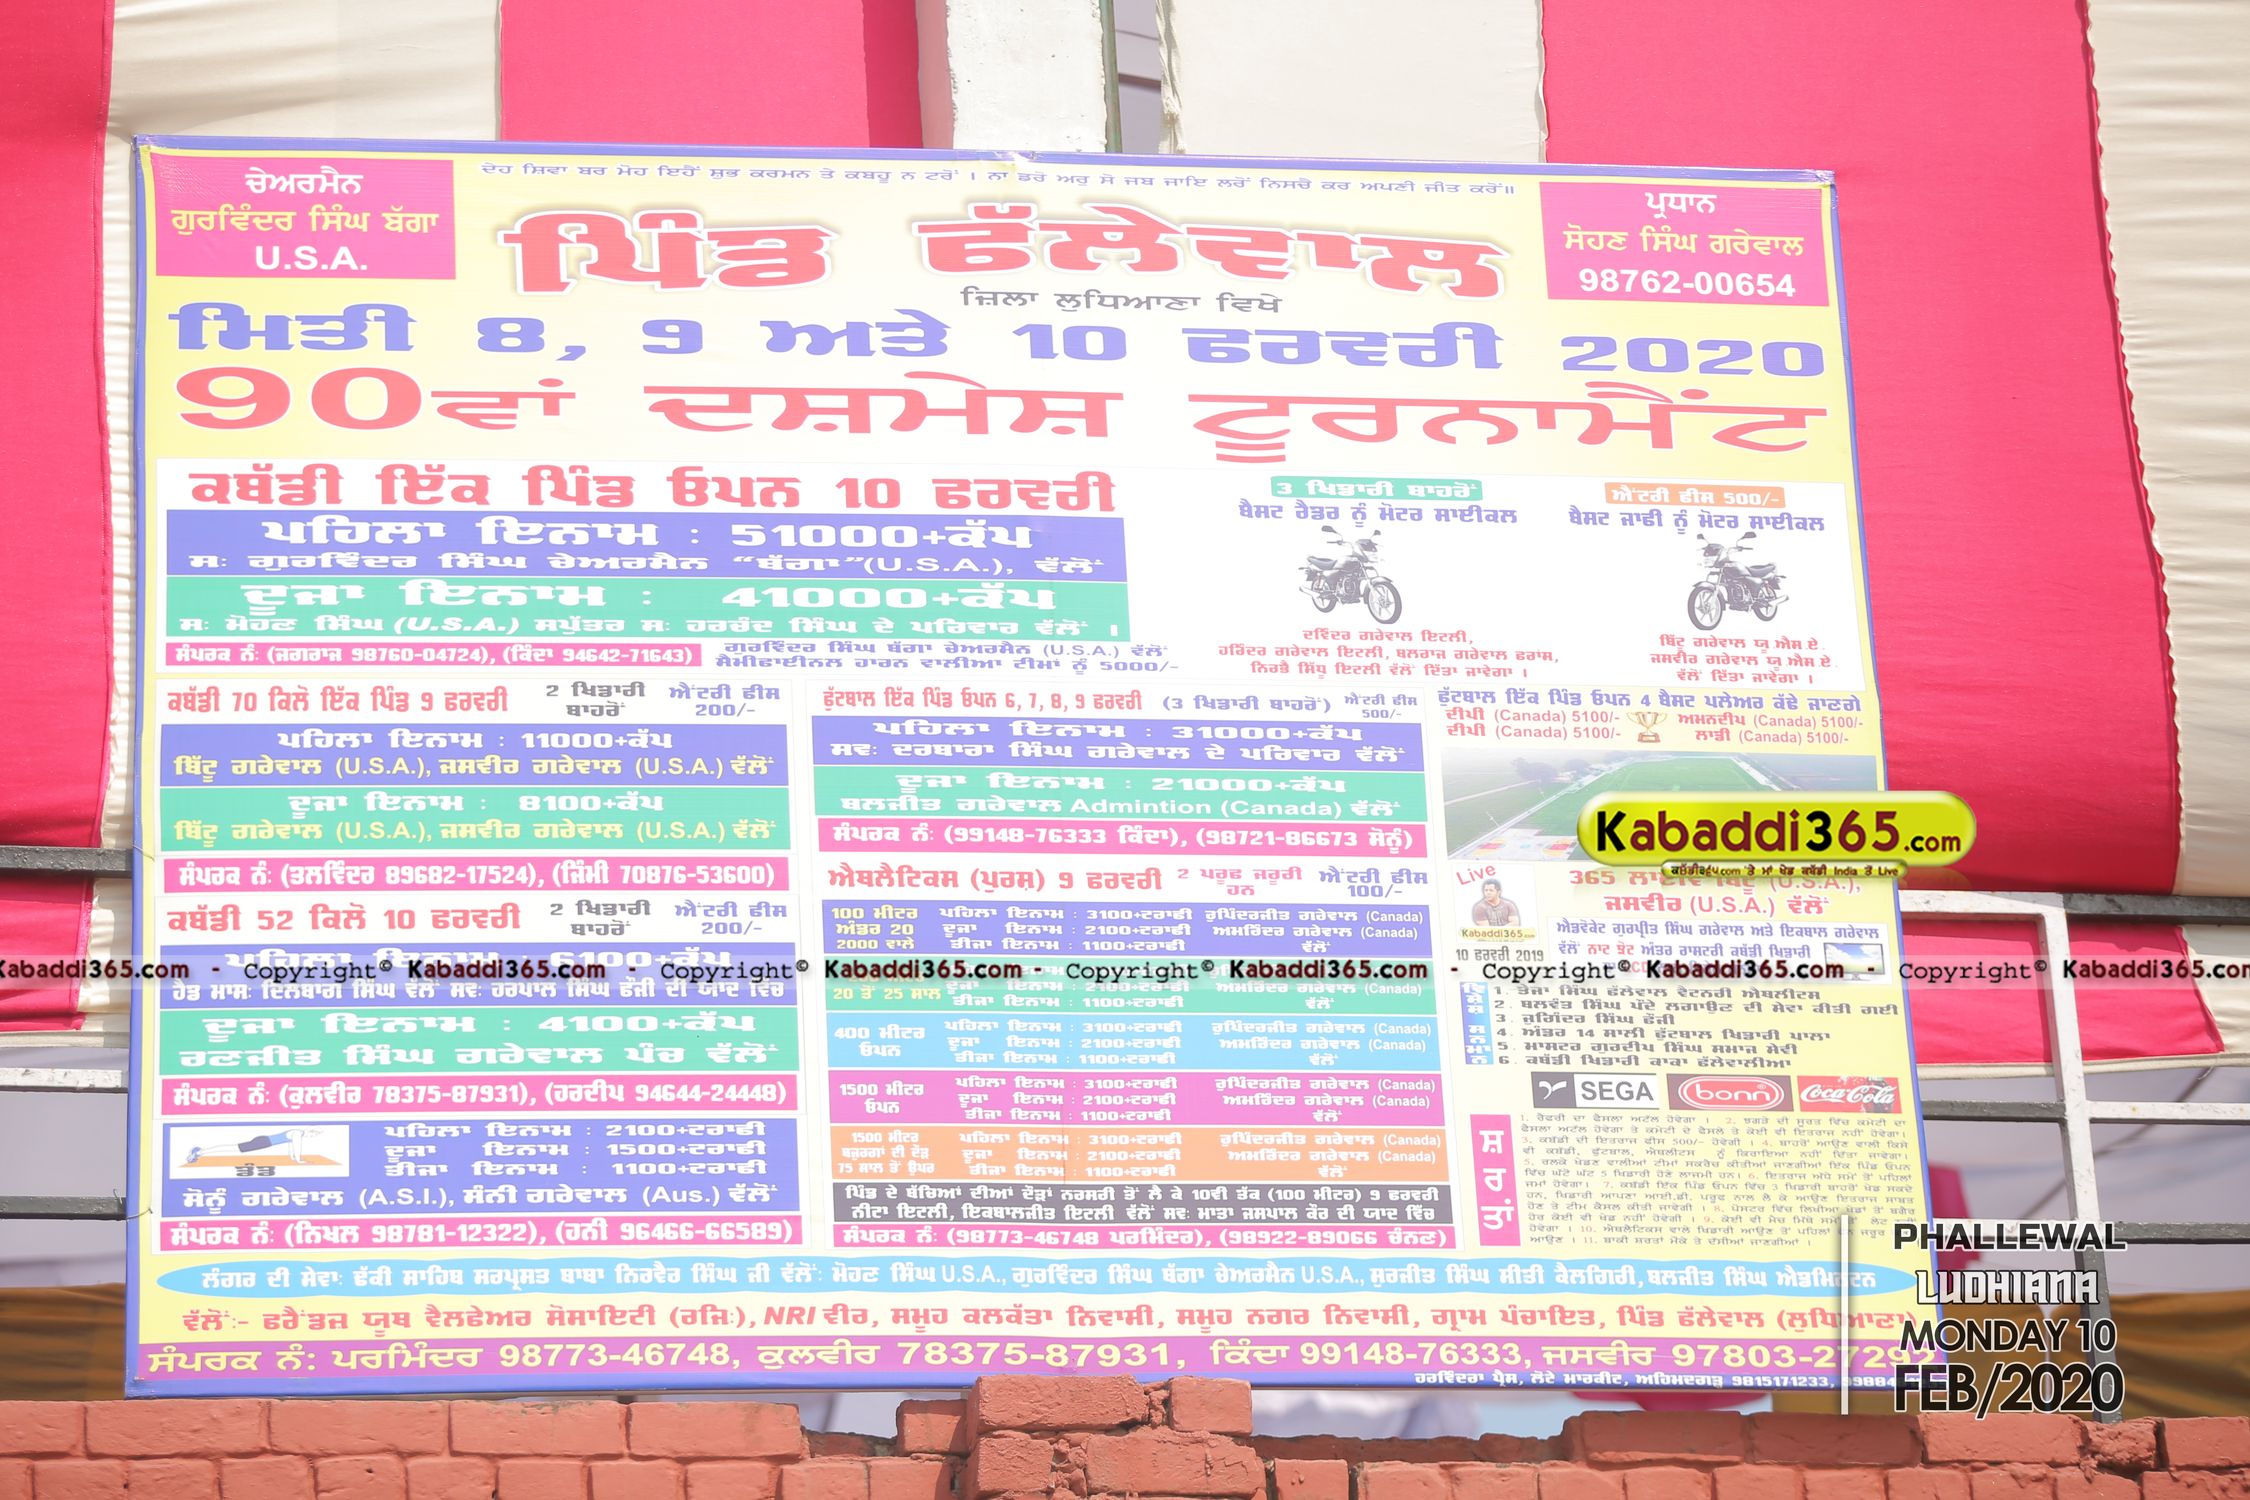 ਦੇਹ ਸ਼ਿਵਾ ਬਰ ਮੋਹ ਇਹੈਂ ਸ਼ੁਭ ਕਰਮਨ ਤੇ ਕਬਹੂ ਨ ਟਰੋਂ । ਨਾ ਡਰੋ ਅਰੁ ਸੋ ਜਬ ਜਾਇ ਲਰੋਂ ਨਿਸਚੈ ਕਰ ਅਪਣੀ ਜੀਤ ਕਰੋਂ॥
ਚੇਅਰਮੈਨ
ਗੁਰਵਿੰਦਰ ਸਿੰਘ ਬੱਗਾ
U.S.A.
ਪ੍ਰਧਾਨ
ਸੋਹਣ ਸਿੰਘ ਗਰੇਵਾਲ
98762-00654
ਪਿੰਡ ਫੱਲੇਵਾਲ
ਜ਼ਿਲਾ ਲੁਧਿਆਣਾ ਵਿਖੇ
ਮਿਤੀ 8, 9 ਅਤੇ 10 ਫਰਵਰੀ 2020
90ਵਾਂ ਦਸ਼ਮੇਸ਼ ਟੂਰਨਾਮੈਂਟ
ਕਬੱਡੀ ਇੱਕ ਪਿੰਡ ਓਪਨ 10 ਫਰਵਰੀ
ਪਹਿਲਾ ਇਨਾਮ : 51000+ਕੱਪ
ਸ: ਗੁਰਵਿੰਦਰ ਸਿੰਘ ਚੇਅਰਮੈਨ “ਬੱਗਾ”(U.S.A.), ਵੱਲੋਂ
ਦੂਜਾ ਇਨਾਮ : 41000+ਕੱਪ
ਸ: ਮੋਹਣ ਸਿੰਘ (U.S.A.) ਸਪੁੱਤਰ ਸ: ਹਰਚੰਦ ਸਿੰਘ ਦੇ ਪਰਿਵਾਰ ਵੱਲੋਂ ।
ਸੰਪਰਕ ਨੰ: (ਜਗਰਾਜ 98760-04724), (ਕਿੰਦਾ 94642-71643)
ਗੁਰਵਿੰਦਰ ਸਿੰਘ ਬੱਗਾ ਚੇਅਰਮੈਨ (U.S.A.) ਵੱਲੋਂ
ਸੈਮੀਫਾਈਨਲ ਹਾਰਨ ਵਾਲੀਆ ਟੀਮਾਂ ਨੂੰ 5000/-
3 ਖਿਡਾਰੀ ਬਾਹਰੋਂ
ਬੈਸਟ ਰੈਡਰ ਨੂੰ ਮੋਟਰ ਸਾਈਕਲ
ਦਵਿੰਦਰ ਗਰੇਵਾਲ ਇਟਲੀ,
ਹਰਿੰਦਰ ਗਰੇਵਾਲ ਇਟਲੀ, ਬਲਰਾਜ ਗਰੇਵਾਲ ਫਰਾਂਸ,
ਨਿਰਭੈ ਸਿੱਧੂ ਇਟਲੀ ਵੱਲੋਂ ਦਿੱਤਾ ਜਾਵੇਗਾ ।
ਐਂਟਰੀ ਫੀਸ 500/-
ਬੈਸਟ ਜਾਫੀ ਨੂੰ ਮੋਟਰ ਸਾਈਕਲ
ਬਿੱਟੂ ਗਰੇਵਾਲ ਯੂ.ਐਸ ਏ.
ਜਸਵੀਰ ਗਰੇਵਾਲ ਯੂ.ਐਸ ਏ.
ਵੱਲੋਂ ਦਿੱਤਾ ਜਾਵੇਗਾ ।
ਕਬੱਡੀ 70 ਕਿਲੋ ਇੱਕ ਪਿੰਡ 9 ਫਰਵਰੀ
2 ਖਿਡਾਰੀ ਬਾਹਰੋਂ
ਐਂਟਰੀ ਫੀਸ 200/-
ਪਹਿਲਾ ਇਨਾਮ : 11000+ਕੱਪ
ਬਿੱਟੂ ਗਰੇਵਾਲ (U.S.A.), ਜਸਵੀਰ ਗਰੇਵਾਲ (U.S.A.) ਵੱਲੋਂ
ਦੂਜਾ ਇਨਾਮ : 8100+ਕੱਪ
ਬਿੱਟੂ ਗਰੇਵਾਲ (U.S.A.), ਜਸਵੀਰ ਗਰੇਵਾਲ (U.S.A.) ਵੱਲੋਂ
ਸੰਪਰਕ ਨੰ: (ਤਲਵਿੰਦਰ 89682-17524), (ਜਿੰਮੀ 70876-53600)
ਕਬੱਡੀ 52 ਕਿਲੋ 10 ਫਰਵਰੀ
2 ਖਿਡਾਰੀ ਬਾਹਰੋਂ
ਐਂਟਰੀ ਫੀਸ 200/-
ਪਹਿਲਾ ਇਨਾਮ : 6100+ਕੱਪ
ਹੈਡ ਮਾਸ: ਦਿਲਬਾਗ ਸਿੰਘ ਵੱਲੋਂ ਸਵ: ਹਰਪਾਲ ਸਿੰਘ ਫੌਜੀ ਦੀ ਯਾਦ ਵਿੱਚ
ਦੂਜਾ ਇਨਾਮ : 4100+ਕੱਪ
ਰਣਜੀਤ ਸਿੰਘ ਗਰੇਵਾਲ ਪੰਚ ਵੱਲੋਂ
ਸੰਪਰਕ ਨੰ: (ਕੁਲਵੀਰ 78375-87931), (ਹਰਦੀਪ 94644-24448)
ਡੰਡ
ਪਹਿਲਾ ਇਨਾਮ : 2100+ਟਰਾਫੀ
ਦੂਜਾ ਇਨਾਮ : 1500+ਟਰਾਫੀ
ਤੀਜਾ ਇਨਾਮ : 1100+ਟਰਾਫੀ
ਸੋਨੂੰ ਗਰੇਵਾਲ (A.S.I.), ਸੰਨੀ ਗਰੇਵਾਲ (Aus.) ਵੱਲੋਂ
ਸੰਪਰਕ ਨੰ: (ਨਿਖਲ 98781-12322), (ਹਨੀ 96466-66589)
ਫੁੱਟਬਾਲ ਇੱਕ ਪਿੰਡ ਓਪਨ 6, 7, 8, 9 ਫਰਵਰੀ (3 ਖਿਡਾਰੀ ਬਾਹਰੋਂ) ਐਂਟਰੀ ਫੀਸ 500/-
ਪਹਿਲਾ ਇਨਾਮ : 31000+ਕੱਪ
ਸਵ: ਦਰਬਾਰਾ ਸਿੰਘ ਗਰੇਵਾਲ ਦੇ ਪਰਿਵਾਰ ਵੱਲੋਂ
ਦੂਜਾ ਇਨਾਮ : 21000+ਕੱਪ
ਬਲਜੀਤ ਗਰੇਵਾਲ Admintion (Canada) ਵੱਲੋਂ
ਸੰਪਰਕ ਨੰ: (99148-76333 ਕਿੰਦਾ), (98721-86673 ਸੋਨੂੰ)
ਐਥਲੈਟਿਕਸ (ਪੁਰਸ਼) 9 ਫਰਵਰੀ
2 ਪਰੂਫ ਜਰੂਰੀ ਹਨ
ਐਂਟਰੀ ਫੀਸ 100/-
100 ਮੀਟਰ ਪਹਿਲਾ ਇਨਾਮ : 3100+ਟਰਾਫੀ ਰੁਪਿੰਦਰਜੀਤ ਗਰੇਵਾਲ (Canada)
ਅੰਡਰ 20 ਦੂਜਾ ਇਨਾਮ : 2100+ਟਰਾਫੀ ਅਮਰਿੰਦਰ ਗਰੇਵਾਲ (Canada)
2000 ਵਾਲੇ ਤੀਜਾ ਇਨਾਮ : 1100+ਟਰਾਫੀ ਵੱਲੋਂ
20 ਤੋਂ 25 ਸਾਲ ਦੂਜਾ ਇਨਾਮ : 2100+ਟਰਾਫੀ ਅਮਰਿੰਦਰ ਗਰੇਵਾਲ (Canada)
ਤੀਜਾ ਇਨਾਮ : 1100+ਟਰਾਫੀ ਵੱਲੋਂ
400 ਮੀਟਰ ਪਹਿਲਾ ਇਨਾਮ : 3100+ਟਰਾਫੀ ਰੁਪਿੰਦਰਜੀਤ ਗਰੇਵਾਲ (Canada)
ਓਪਨ ਦੂਜਾ ਇਨਾਮ : 2100+ਟਰਾਫੀ ਅਮਰਿੰਦਰ ਗਰੇਵਾਲ (Canada)
ਤੀਜਾ ਇਨਾਮ : 1100+ਟਰਾਫੀ ਵੱਲੋਂ
1500 ਮੀਟਰ ਪਹਿਲਾ ਇਨਾਮ : 3100+ਟਰਾਫੀ ਰੁਪਿੰਦਰਜੀਤ ਗਰੇਵਾਲ (Canada)
ਓਪਨ ਦੂਜਾ ਇਨਾਮ : 2100+ਟਰਾਫੀ ਅਮਰਿੰਦਰ ਗਰੇਵਾਲ (Canada)
ਤੀਜਾ ਇਨਾਮ : 1100+ਟਰਾਫੀ ਵੱਲੋਂ
1500 ਮੀਟਰ ਪਹਿਲਾ ਇਨਾਮ : 3100+ਟਰਾਫੀ ਰੁਪਿੰਦਰਜੀਤ ਗਰੇਵਾਲ (Canada)
ਬਜ਼ੁਰਗਾਂ ਦੀ ਦੌੜ ਦੂਜਾ ਇਨਾਮ : 2100+ਟਰਾਫੀ ਅਮਰਿੰਦਰ ਗਰੇਵਾਲ (Canada)
75 ਸਾਲ ਤੋਂ ਉਪਰ ਤੀਜਾ ਇਨਾਮ : 1100+ਟਰਾਫੀ ਵੱਲੋਂ
ਪਿੰਡ ਦੇ ਬੱਚਿਆਂ ਦੀਆਂ ਦੌੜਾਂ ਨਰਸਰੀ ਤੋਂ ਲੈ ਕੇ 10ਵੀ ਤੱਕ (100 ਮੀਟਰ) 9 ਫਰਵਰੀ
ਨੀਟਾ ਇਟਲੀ, ਇਕਬਾਲਜੀਤ ਇਟਲੀ ਵੱਲੋਂ ਸਵ: ਮਾਤਾ ਜਸਪਾਲ ਕੌਰ ਦੀ ਯਾਦ ਵਿੱਚ
ਸੰਪਰਕ ਨੰ: (98773-46748 ਪਰਮਿੰਦਰ), (98922-89066 ਚੰਨਣ)
ਫੁੱਟਬਾਲ ਇੱਕ ਪਿੰਡ ਓਪਨ 4 ਬੈਸਟ ਪਲੇਅਰ ਕੱਢੇ ਜਾਣਗੇ
ਦੀਪੀ (Canada) 5100/- ਅਮਨਦੀਪ (Canada) 5100/-
ਦੀਪੀ (Canada) 5100/- ਲਾਡੀ (Canada) 5100/-
Kabaddi365.com
Live
365 ਲਾਈਵ ਬਿੱਟੂ (U.S.A.),
ਜਸਵੀਰ (U.S.A.) ਵੱਲੋਂ
Kabaddi365.com
10 ਫਰਵਰੀ 2019
ਐਡਵੋਕੇਟ ਗੁਰਪ੍ਰੀਤ ਸਿੰਘ ਗਰੇਵਾਲ ਅਤੇ ਇਕਬਾਲ ਗਰੇਵਾਲ
ਵੱਲੋਂ ਨਾਟ ਭੇਟ ਅੰਤਰ ਰਾਸ਼ਟਰੀ ਕਬੱਡੀ ਖਿਡਾਰੀ
Kabaddi365.com - Copyright© Kabaddi365.com - Copyright© Kabaddi365.com - Copyright© Kabaddi365.com - Copyright© Kabaddi365.com - Copyright© Kabaddi365.com
1. ਤੇਜਾ ਸਿੰਘ ਫੱਲੇਵਾਲ ਵੈਟਨਰੀ ਐਥਲੀਟਸ
2. ਬਲਵੰਤ ਸਿੰਘ ਪੌਦੇ ਲਗਾਉਣ ਦੀ ਸੇਵਾ ਕੀਤੀ ਗਈ
3. ਜੁਗਿੰਦਰ ਸਿੰਘ ਫੌਜੀ
4. ਅੰਡਰ 14 ਸਾਲੀ ਫੁੱਟਬਾਲ ਖਿਡਾਰੀ ਪਾਲਾ
5. ਮਾਸਟਰ ਗੁਰਦੀਪ ਸਿੰਘ ਸਮਾਜ ਸੇਵੀ
6. ਕਬੱਡੀ ਖਿਡਾਰੀ ਕਾਕਾ ਫੱਲੇਵਾਲੀਆ
SEGA bonn Coca-Cola
ਸ਼ਰਤਾਂ
ਲੰਗਰ ਦੀ ਸੇਵਾ: ਢੱਕੀ ਸਾਹਿਬ ਸਰਪ੍ਰਸਤ ਬਾਬਾ ਨਿਰਵੈਰ ਸਿੰਘ ਜੀ ਵੱਲੋਂ: ਮੋਹਣ ਸਿੰਘ U.S.A., ਗੁਰਵਿੰਦਰ ਸਿੰਘ ਬੱਗਾ ਚੇਅਰਮੈਨ U.S.A., ਸੁਰਜੀਤ ਸਿੰਘ ਸੀਤੀ ਕੈਲਗਿਰੀ, ਬਲਜੀਤ ਸਿੰਘ ਐਡਮਿੰਟਨ
ਵੱਲੋਂ:- ਫਰੈਂਡਜ਼ ਯੂਥ ਵੈਲਫੇਅਰ ਸੋਸਾਇਟੀ (ਰਜਿ:), NRI ਵੀਰ, ਸਮੂਹ ਕਲਕੱਤਾ ਨਿਵਾਸੀ, ਸਮੂਹ ਨਗਰ ਨਿਵਾਸੀ, ਗ੍ਰਾਮ ਪੰਚਾਇਤ, ਪਿੰਡ ਫੱਲੇਵਾਲ (ਲੁਧਿਆਣਾ)
ਸੰਪਰਕ ਨੰ: ਪਰਮਿੰਦਰ 98773-46748, ਕੁਲਵੀਰ 78375-87931, ਕਿੰਦਾ 99148-76333, ਜਸਵੀਰ 97803-27292
ਹਰਵਿੰਦਰਾ ਪ੍ਰੈਸ, ਲੋਟੇ ਮਾਰਕੀਟ, ਅਹਿਮਦਗੜ੍ਹ 9815171233,
PHALLEWAL
LUDHIANA
MONDAY 10
FEB/2020